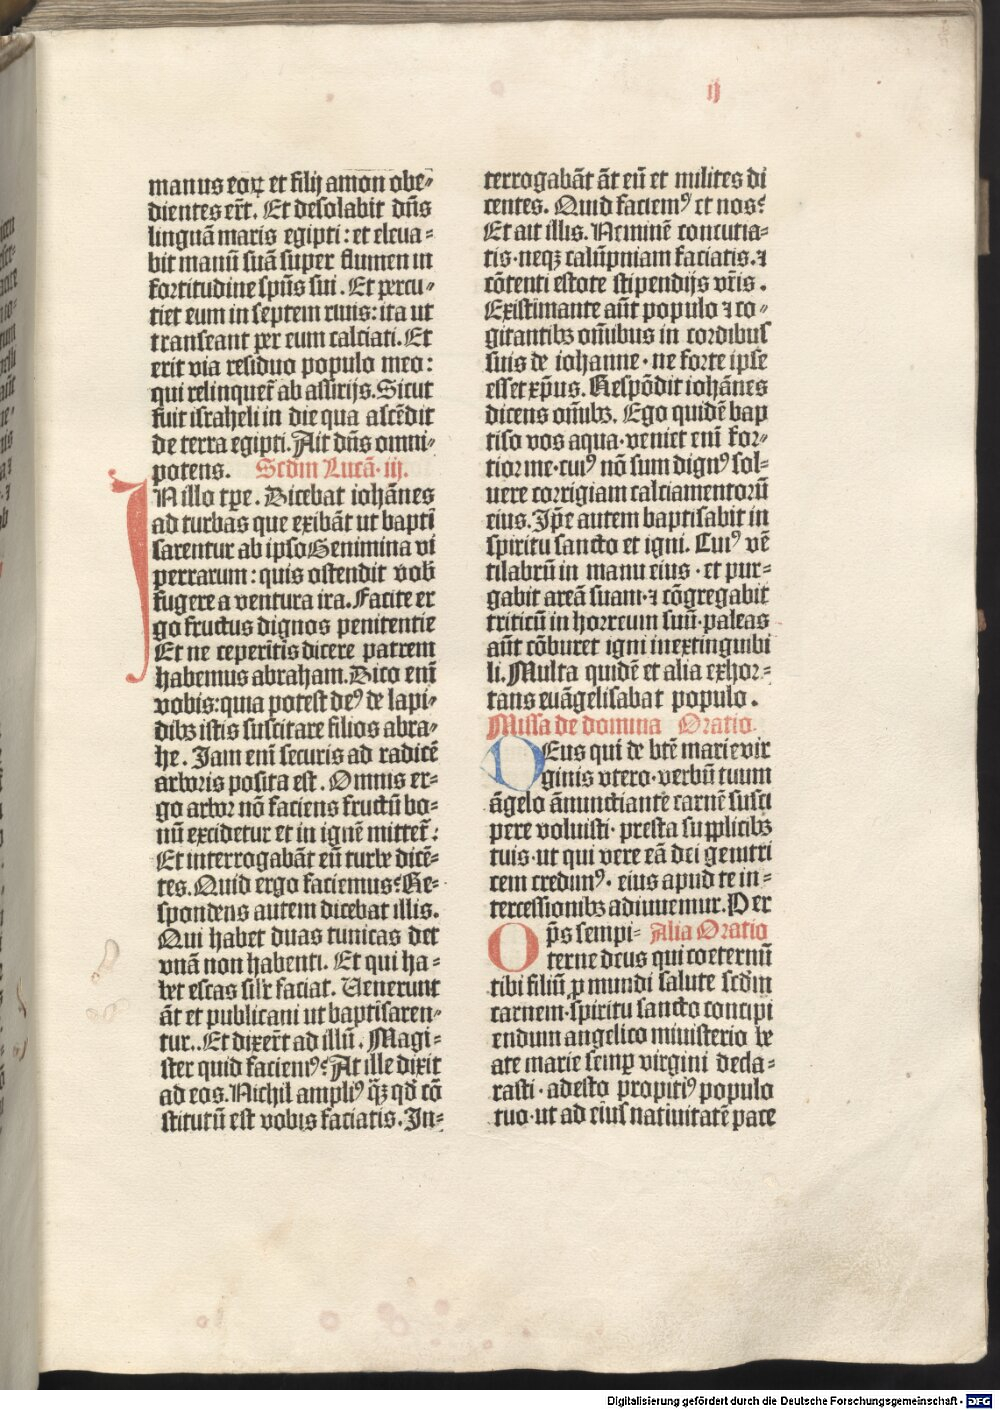 ij
manus eoꝝ et filij amon obe⸗
dientes er̄t. Et desolabit dn̄s
linguā maris egipti: et eleua⸗
bit manū suā super flumen in
fortitudine spūs sui. Et percu⸗
tiet eum in septem riuis: ita ut
transeant per eum calciati. Et
erit via residuo populo meo:
qui relinquet̄ ab assirijs. Sicut
fuit israheli in die qua ascēdit
de terra egipti. Ait dn̄s omni⸗
potens. Scdm Lucā· iij.
IN illo tꝑe. Dicebat iohānes
ad turbas que exibāt ut bapti
sarentur ab ipso Genimina vi
perrarum: quis ostendit vob̄
fugere a ventura ira. Facite er
go fructus dignos penitentie
Et ne ceperitis dicere patrem
habemus abraham. Dico enī
vobis: quia potest deꝰ de lapi⸗
dibꝫ istis suscitare filios abra⸗
he. Jam enī securis ad radicē
arboris posita est. Omnis er⸗
go arbor nō faciens fructū bo⸗
nū excidetur et in ignē mittet̄:
Et interrogabāt eū turbe dicē⸗
tes. Quid ergo faciemus? Re⸗
spondens autem dicebat illis.
Qui habet duas tunicas det
vnā non habenti. Et qui ha⸗
bet escas silr̄ faciat. Uenerunt
āt et publicani ut baptisaren⸗
tur.. Et dixer̄t ad illū. Magi⸗
ster quid faciemꝰ? At ille dixit
ad eos. Nichil ampliꝰ q̄ꝫ qd̄ cō
stitutū est vobis faciatis. In⸗
terrogabāt āt eū et milites di
centes. Quid faciemꝰ et nos?
Et ait illis. Neminē concutia⸗
tis· neqꝫ calūpniam faciatis. ⁊
cōtenti estote stipendijs vr̄is.
Existimante aūt populo ⁊ co⸗
gitantibꝫ om̄ibus in cordibus
suis de iohanne· ne forte ipse
esset xp̄us. Respōdit iohānes
dicens om̄ibꝫ. Ego quidē bap
tiso vos aqua· veniet enī for⸗
tior me· cuiꝰ nō sum dignꝰ sol⸗
uere corrigiam calciamentorū
eius. Ip̄e autem baptisabit in
spiritu sancto et igni. Cuiꝰ vē
tilabrū in manu eius· et pur⸗
gabit areā suam· ⁊ cōgregabit
triticū in horreum suū· paleas
aūt cōburet igni inextinguibi
li. Multa quidē et alia exhor⸗
tans euāgelisabat populo.
Missa de domina Oratio.
DEus qui de btē marie vir
ginis vtero· verbū tuum
āgelo ānunctiante carnē susci
pere voluisti· presta supplicibꝫ
tuis· ut qui vere eā dei genitri
cem credimꝰ· eius apud te in⸗
tercessionibꝫ adiuuemur. Per
Op̄s sempi⸗ Alia Oratio
terne deus qui coeternū
tibi filiū ꝓ mundi salute scdm
carnem· spiritu sancto concipi
endum angelico ministerio be
ate marie semꝑ virgini decla⸗
rasti· adesto propitiꝰ populo
tuo· ut ad eius natiuitatē pace
Digitalisierung gefördert durch die Deutsche Forschungsgemeinschaft - DFG